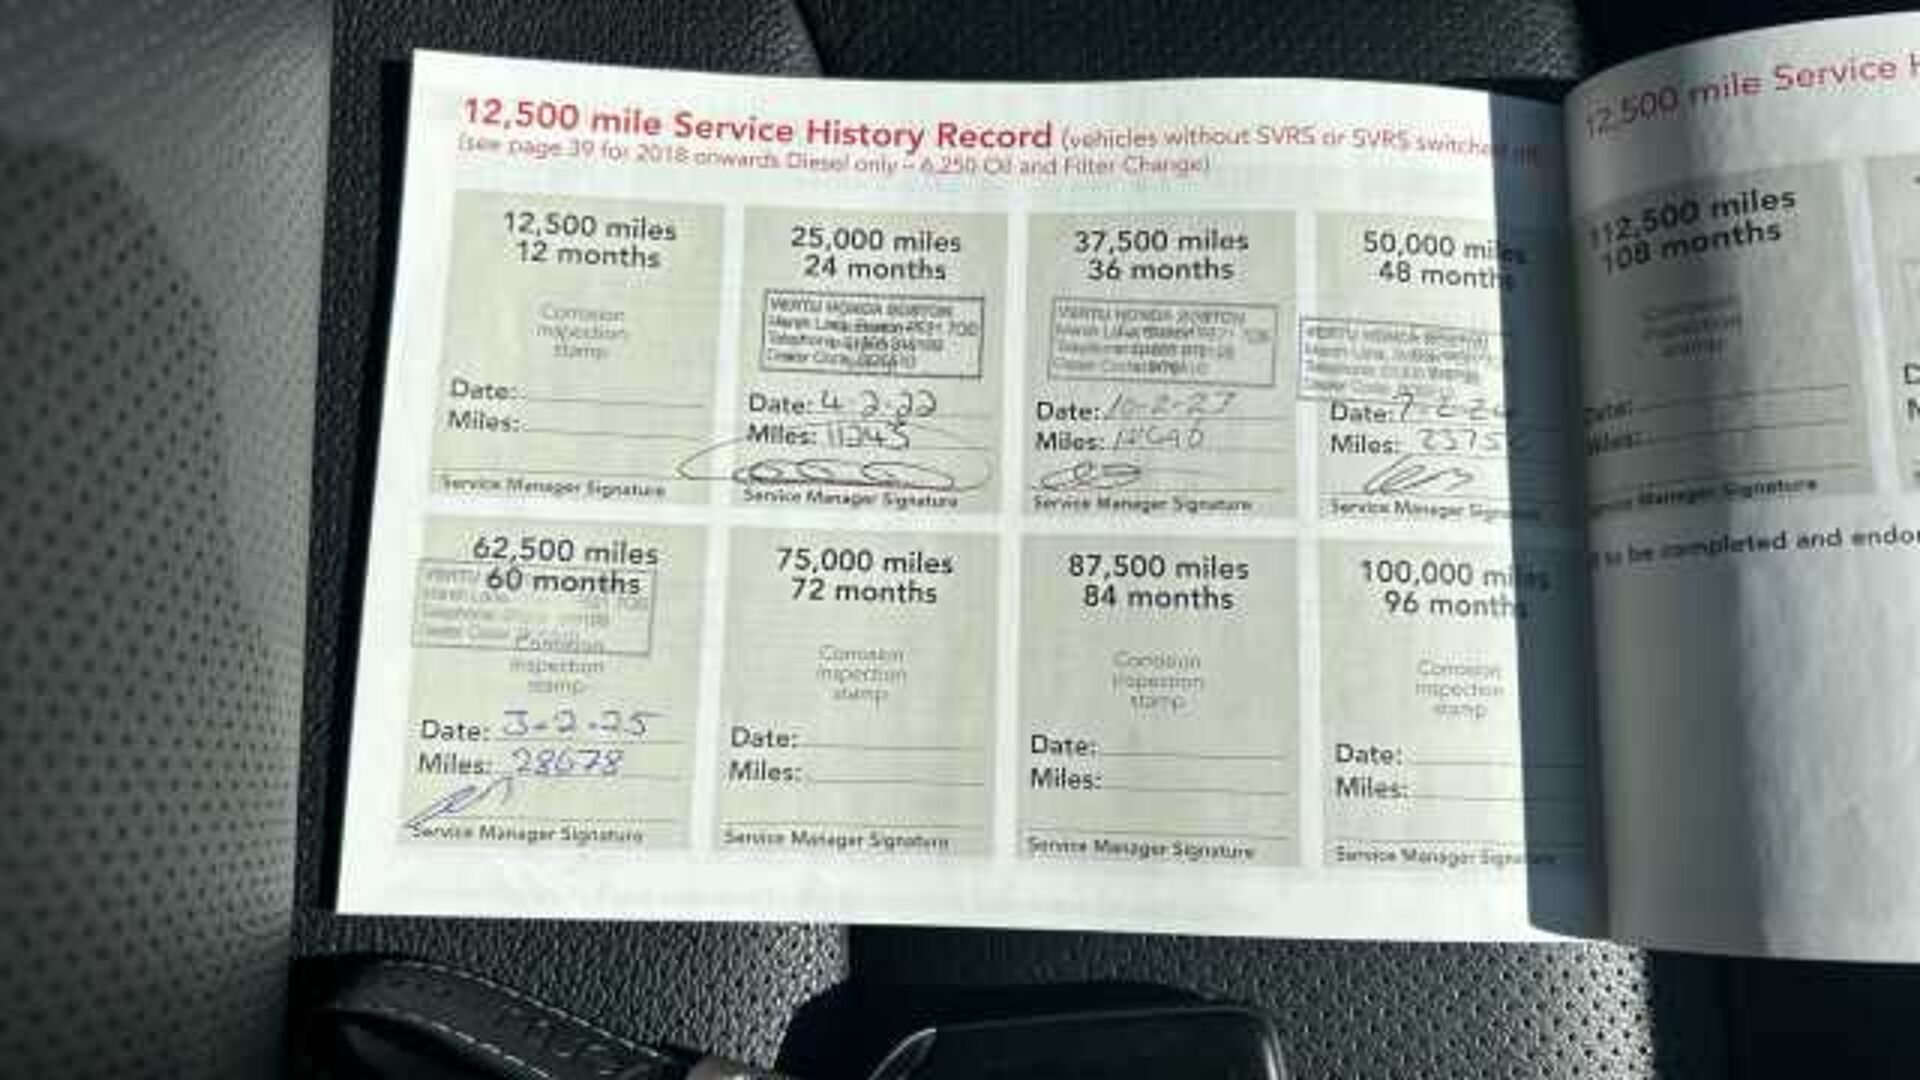 12,500 mile Service History Record (vehicles without SVRS or SVRS switched off
(see page 39 for 2018 onwards Diesel only – 6,250 Oil and Filter Change)
12,500 miles
12 months
Corrosion
inspection
stamp
Date:
Miles:
Service Manager Signature
25,000 miles
24 months
VERTU HONDA BOSTON
Marsh Lane, Boston PE21 7QD
Telephone:
Dealer Code:
Date: 4-2-22
Miles: 11245
Service Manager Signature
37,500 miles
36 months
VERTU HONDA BOSTON
Marsh Lane, Boston
Telephone:
Dealer Code:
Date: 10-2-23
Miles:
Service Manager Signature
50,000 miles
48 months
VERTU HONDA BOSTON
Marsh Lane, Boston
Telephone:
Dealer Code:
Date: 7-2-24
Miles: 2375
Service Manager Signature
62,500 miles
60 months
VERTU
Marsh Lane
Telephone
Dealer Code
Corrosion
inspection
stamp
Date: 3-2-25
Miles: 28678
Service Manager Signature
75,000 miles
72 months
Corrosion
inspection
stamp
Date:
Miles:
Service Manager Signature
87,500 miles
84 months
Corrosion
inspection
stamp
Date:
Miles:
Service Manager Signature
100,000 miles
96 months
Corrosion
inspection
stamp
Date:
Miles:
Service Manager Signature
12,500 mile Service H
112,500 miles
108 months
Corrosion
inspection
stamp
Date:
Miles:
Service Manager Signature
to be completed and endor